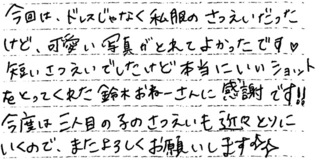 今回は、ドレスじゃなく私服のさつえいだった
けど、可愛い写真がとれてよかったです♡
短いさつえいでしたけど本当にいいショット
をとってくれた鈴木おねーさんに感謝です!!
今度は三人目の子のさつえいも近々とりに
いくので、またよろしくお願いします☆☆